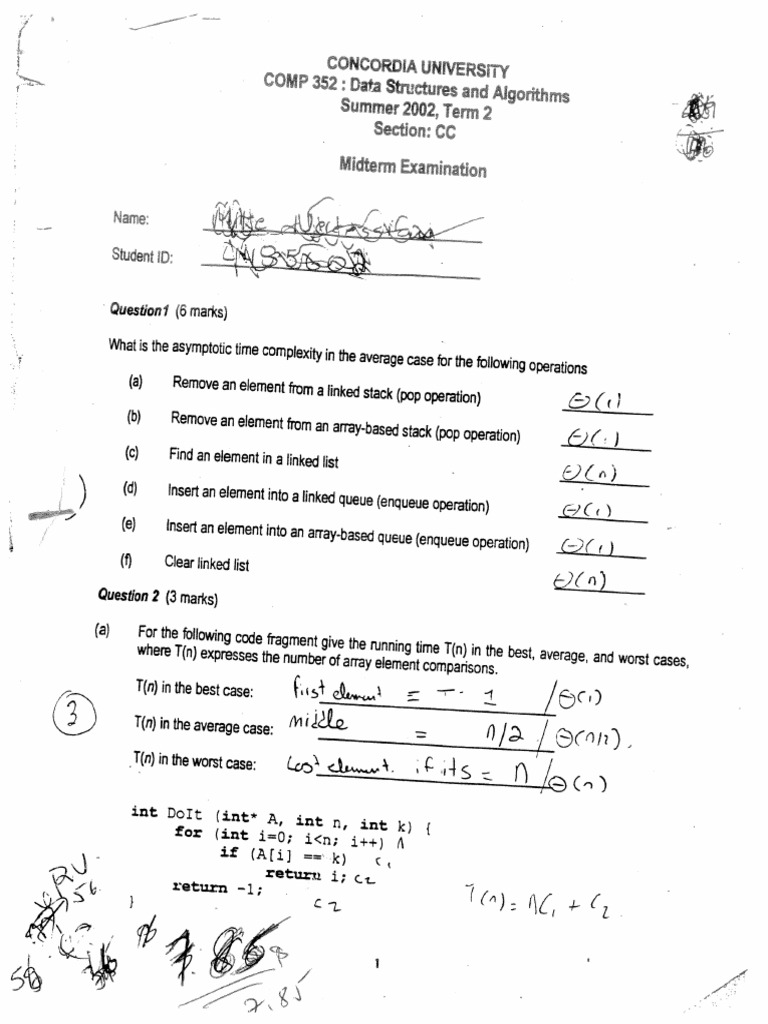 CONCORDIA UNIVERSITY
COMP 352 : Data Structures and Algorithms
Summer 2002, Term 2
Section: CC
Midterm Examination
Name:
Student ID:
Question1 (6 marks)
What is the asymptotic time complexity in the average case for the following operations
(a) Remove an element from a linked stack (pop operation) Θ(1)
(b) Remove an element from an array-based stack (pop operation) Θ(1)
(c) Find an element in a linked list Θ(n)
(d) Insert an element into a linked queue (enqueue operation) Θ(1)
(e) Insert an element into an array-based queue (enqueue operation) Θ(1)
(f) Clear linked list Θ(n)
Question 2 (3 marks)
(a) For the following code fragment give the running time T(n) in the best, average, and worst cases,
where T(n) expresses the number of array element comparisons.
T(n) in the best case: first element = 1 / Θ(1)
3
T(n) in the average case: middle = n/2 / Θ(n/2).
T(n) in the worst case: Last element. if its = n / Θ(n)
int DoIt (int* A, int n, int k) {
for (int i=0; i<n; i++) n
if (A[i] == k) c1
return i; c2
return -1;
c2
}
T(n) = nC1 + C2
RV
56
56
7.85
1